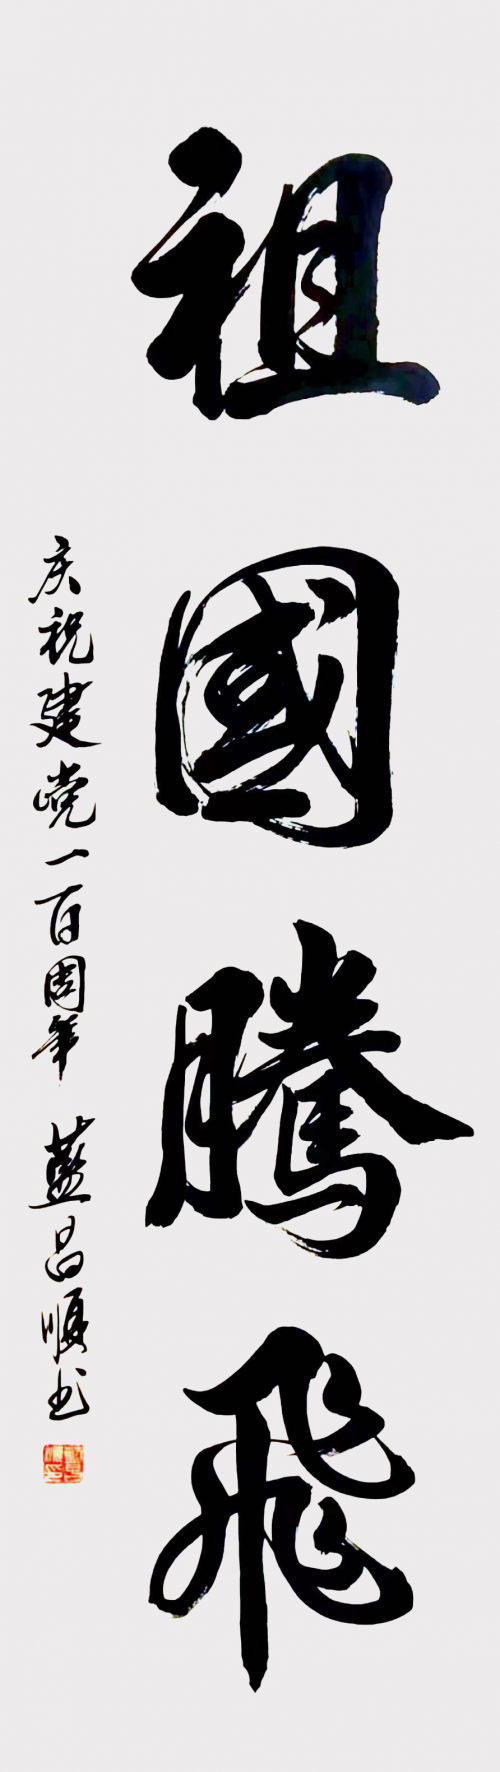 祖國騰飛
庆祝建党一百周年 蓝昌順书